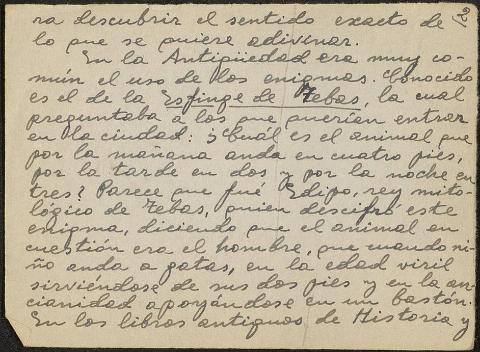 ra descubrir el sentido exacto de
lo que se quiere adivinar.
En la Antigüedad era muy co-
mún el uso de los enigmas. Conocido
es el de la Esfinge de Tebas, la cual
preguntaba a los que querían entrar
en la ciudad: ¿Cuál es el animal que
por la mañana anda en cuatro pies,
por la tarde en dos y por la noche en
tres? Parece que fué Edipo, rey mito-
lógico de Tebas, quien descifró este
enigma, diciendo que el animal en
cuestión era el hombre, que cuando ni-
ño anda a gatas, en la edad viril
sirviéndose de sus dos pies y en la an-
cianidad apoyándose en un bastón.
En los libros antiguos de Historia y